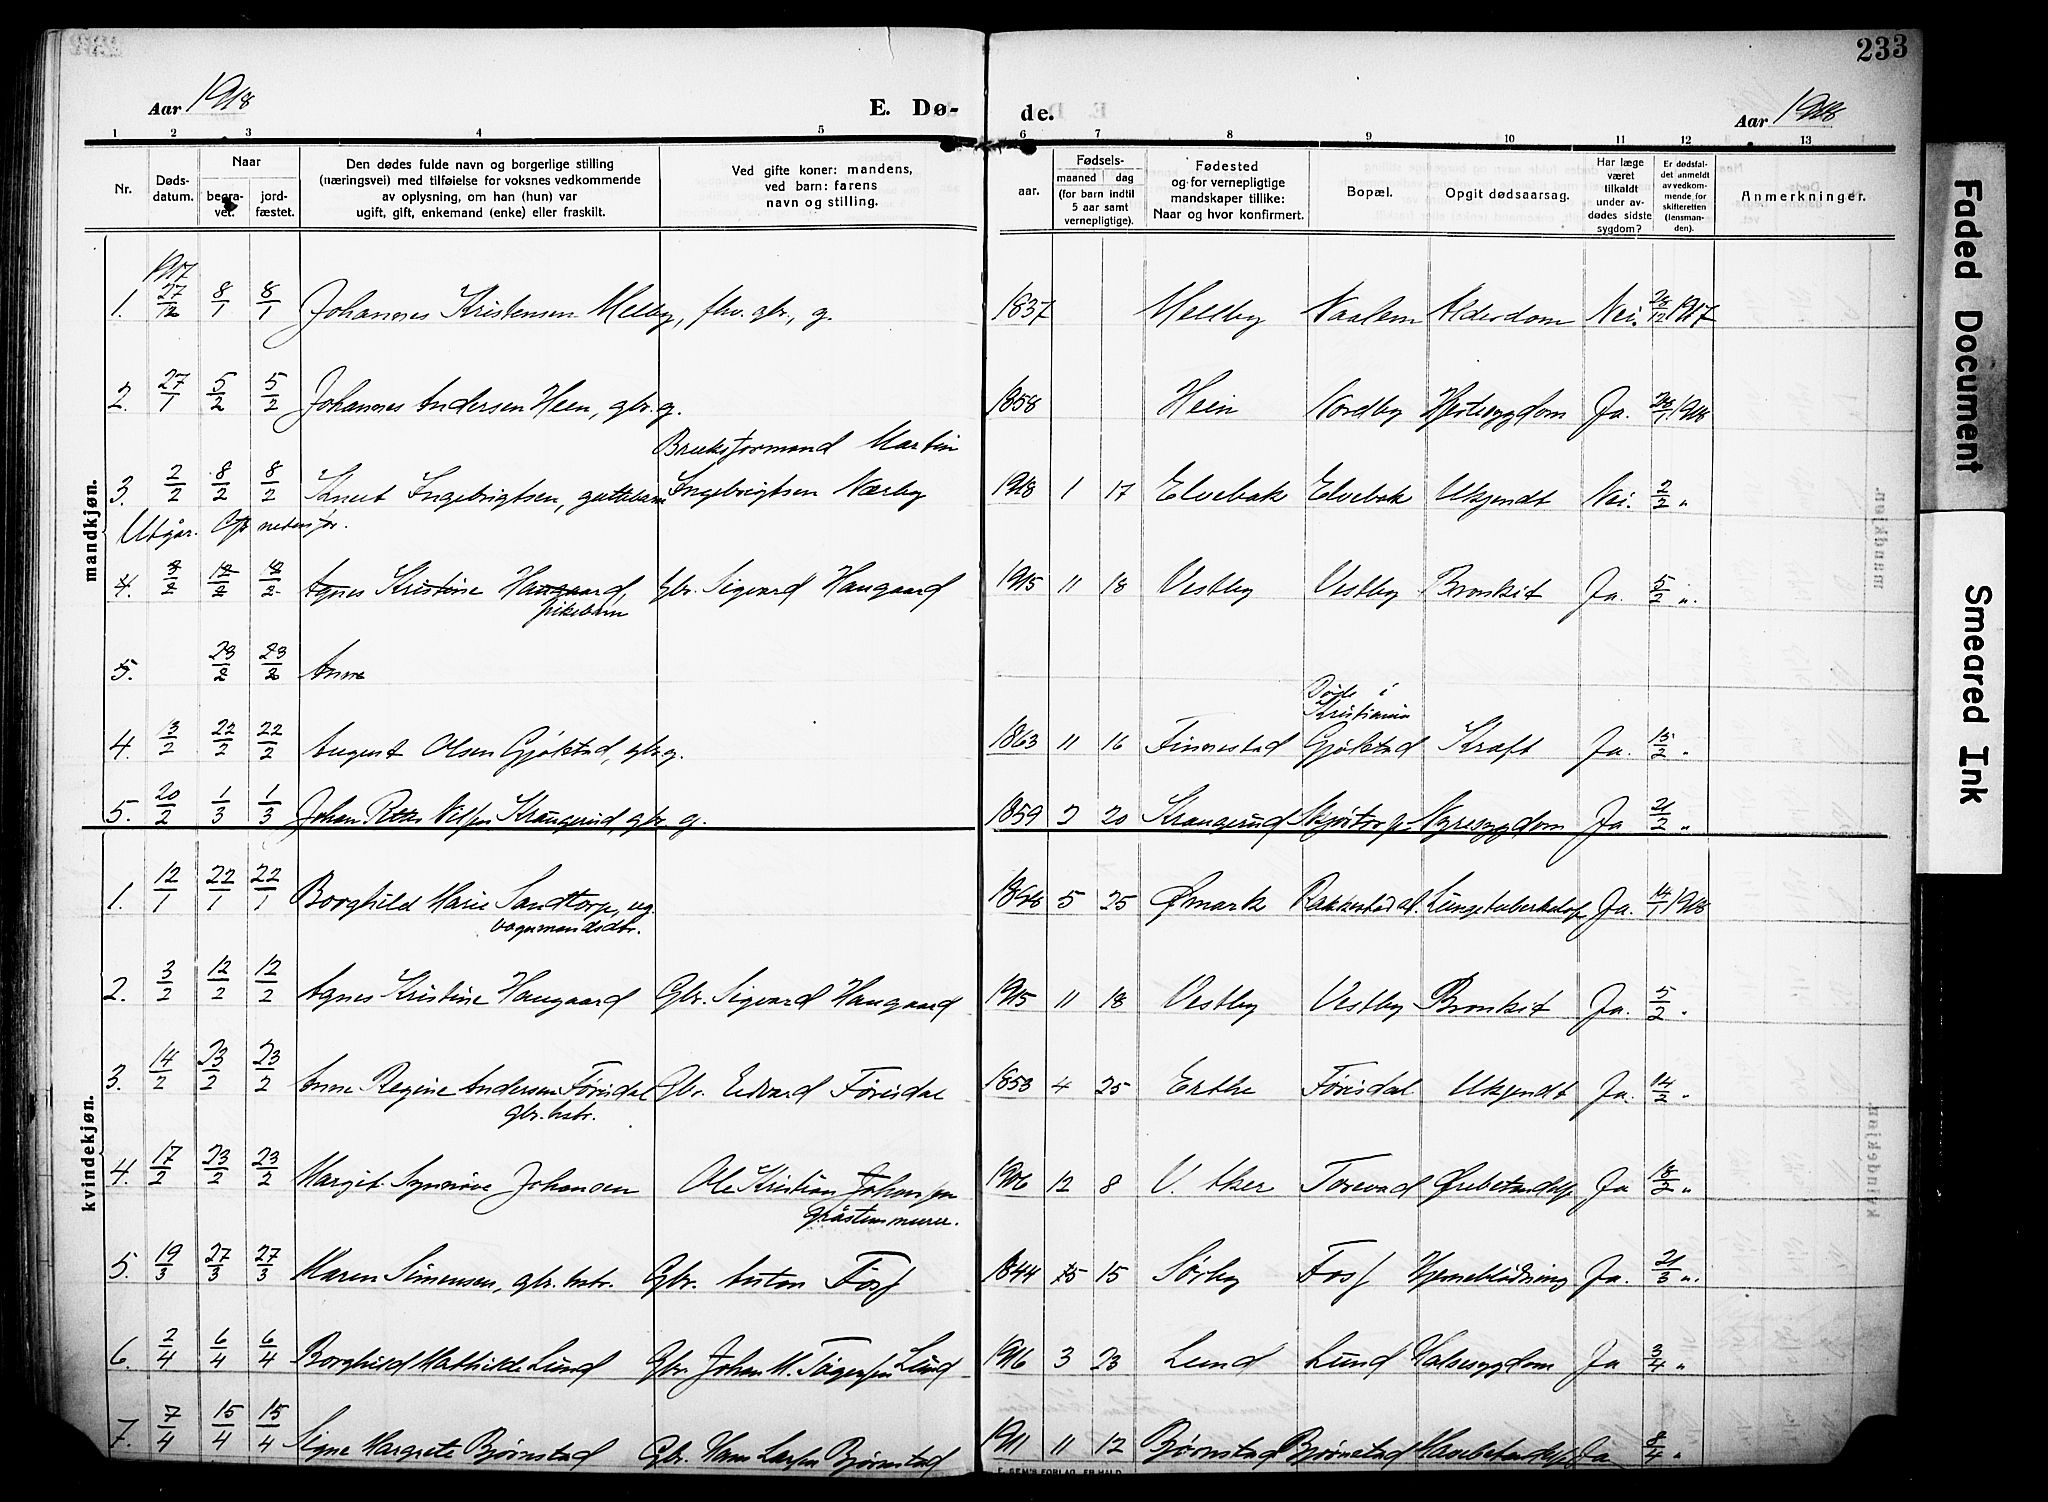 233
Aar 1918 E. Dø- de. Aar 1918
1 2 3 4 5 6 7 8 9 10 11 12 13
Nr.
Døds-
datum.
Naar
begra-
vet.
jord-
fæstet.
Den dødes fulde navn og borgerlige stilling
(næringsvei) med tilføielse for voksnes vedkommende
av oplysning, om han (hun) var
ugift, gift, enkemand (enke) eller fraskilt.
Ved gifte koner: mandens,
ved barn: farens
navn og stilling.
aar.
Fødsels-
maaned dag
(for barn indtil
5 aar samt
vernepligtige).
Fødested
og for vernepligtige
mandskaper tillike:
Naar og hvor konfirmert.
Bopæl.
Opgit dødsaarsag.
Har læge
været
tilkaldt
under av-
dødes sidste
sygdom?
Er dødsfal-
det anmeldt
av vedkom-
mende for
skifteretten
(lensman-
den).
Anmerkninger.
mandkjøn.
1917
1. 27/12 8/1 8/1 Johannes Kristensen Melby, fhv. gbr., g. 1837 Mellby Naalem Alderdom Nei. 28/12 1917
2. 27/1 5/2 5/2 Johannes Andersen Heen, gbr. g. 1858 Hein Nordby Hjertesygdom Ja. 28/1 1918
Bruksformand Martin
3. 2/2 8/2 8/2 Knut Ingebrigtsen, guttebarn Ingebrigtsen Nærby 1918 1 17 Elvebak Elvebak Ukjendt Nei. 2/2 "
Utgår. Cfr nedenfor.
4. 3/2 12/2 12/2 Agnes Kristine Haugaard, Gbr. Sigvard Haugaard 1915 11 18 Vestby Vestby Bronkit Ja. 5/2 ".
pikebarn
5. 23/2 23/2 Anne
Døde i
Kristiania
4. 13/2 22/2 22/2 August Olsen Gjølstad, gbr. g. 1863 11 16 Finnestad Gjølstad Kræft Ja. 15/2 "
5. 20/2 1/3 1/3 Johan Nilsen Krangerud, gbr. g. 1859 2 20 Krangerud Nyresygdom Ja 21/2 "
kvindekjøn.
1. 12/1 22/1 22/1 Borghild Marie Sandtorp, ug. 1898 5 25 Ømark Rakkestad Lungetuberkulose Ja. 14/1 1918
2. 3/2 12/2 12/2 Agnes Kristine Haugaard Gbr. Sigvard Haugaard 1915 11 18 Vestby Vestby Bronkit Ja. 5/2 "
3. 14/2 23/2 23/2 Anne Regine Andersen Førisdal Gbr. Edvard Førisdal 1853 4 25 Erthe Førisdal Ukjendt Ja. 14/2 "
gbr. hstr.
4. 17/2 23/2 23/2 Margit Synnøve Johansen Ole Kristian Johansen 1906 12 8 V. Aker Torevad Ja 18/2 "
gråstensmurer.
5. 19/3 27/3 27/3 Maren Simensen, gbr. hstr. Gbr. Anton Foss 1844 15 Sørby Foss Hjerneblødning Ja. 21/3 ".
6. 2/4 6/4 6/4 Borghild Mathilde Lund Gbr Johan M. Lund 1916 3 23 Lund Lund Halsesygdom Ja 3/4 "
7. 7/4 15/4 15/4 Signe Margrete Bjørnstad Gbr. Hans Larsen Bjørnstad 1911 11 12 Bjørnstad Bjørnstad Ja 8/4 "
Faded Document
Smeared Ink